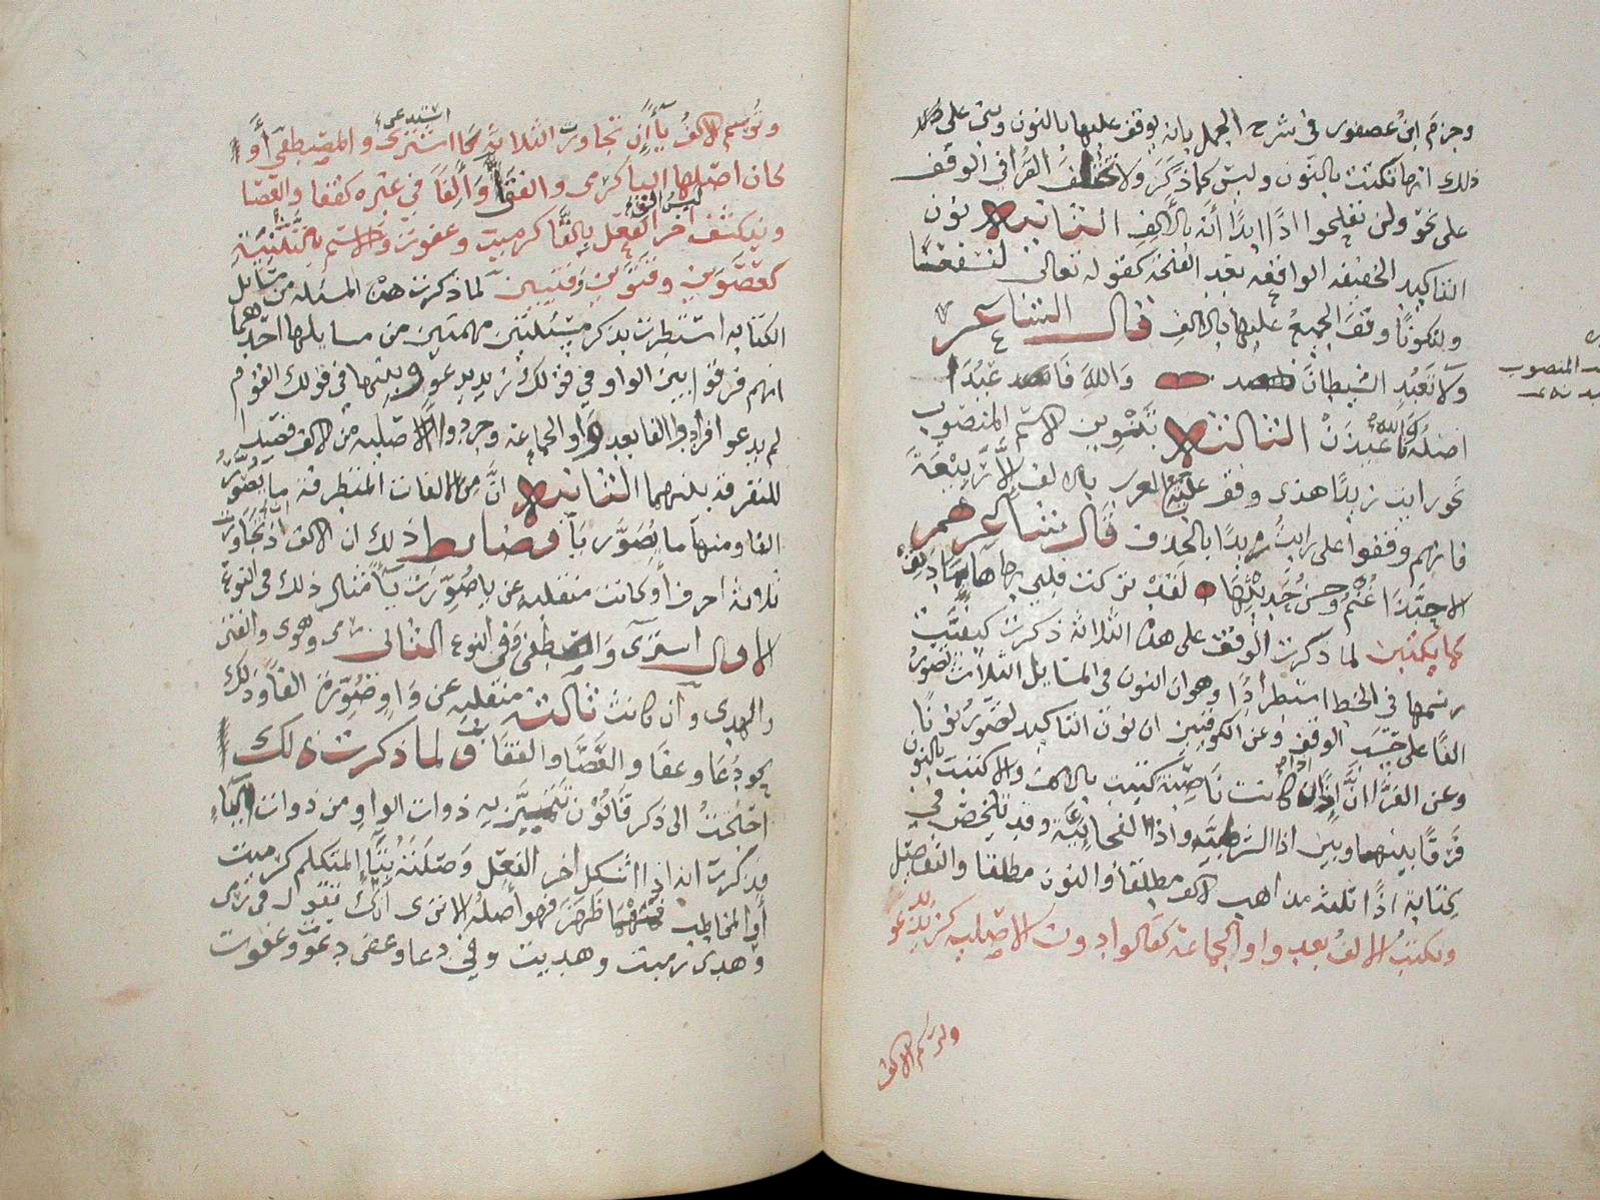 وجزم ابن عصفور في شرح الجمل بانه يوقف عليها بالنون وبنى على
ذلك انها تكتب بالنون وليس كما ذكر ولا تختلف القرا في الوقف
على نحو ولن تفلحوا اذا ابدا انه بالالف الثانيه نون
التاكيد الخفيفه الواقعه بعد الفتحه كقوله تعالى لنسفعا
وليكونا وقف الجميع عليها بالالف قال الشاعر
ولا تعبد الشيطان والله فاعبدا
اصله فاعبدن الثالثه تنوين الاسم المنصوب
نحو رايت زيدا هذى وقف عليه العرب بالالف الا ربيعة
فانهم وقفوا على رايت زيدا بالحذف قال شاعرهم
الا حبذا غنم وحسن حديثها لقد تركت قلبي بها هايما دنف
كما يكتبن لما ذكرت الوقف على هذه الثلاثة ذكرت كيفية
رسمها في الخط استطرادا وهو ان النون في المسايل الثلاث تصور
الفا على حسب الوقف وعن الكوفيين ان نون التاكيد تصور نونا
وعن الفرا ان اذا كانت ناصبة كتبت بالالف والا كتبت بالنون
فرقا بينها وبين اذا الشرطيه واذا الفجاييه وقد تلخص في
كتابة اذا ثلثة مذاهب الالف مطلقا والنون مطلقا والتفصيل
وتكتب الالف بعد واو الجماعة كقالوا دون الاصليه كزيد يدعو
وترسم الالف
المنصوب
وترسم الالف يا ان تجاوزت الثلاثة كاستدعى واشترى والمصطفى او
كان اصلها اليا كرمى والفتى والفا في غيره كقفا والعصا
وينكشف امر الف الفعل بالتا كرميت وعفوت والاسم بالتثنية
كعصوين وفتيين لما ذكرت هذه المسئله من مسايل
الكتابه استطردت بذكر مسئلتين مهمتين من مسايلها احدهما
انهم فرقوا بين الواو في قولك زيد يدعو وبينها في قولك القوم
لم يدعوا فزادوا الفا بعد واو الجماعة وجردوا الاصليه من الالف قصدا
للتفرقه بينهما الثانيه ان من الالفات المتطرفة ما يصور
الفا ومنها ما يصور يا وضابط ذلك ان الالف اذا تجاوزت
ثلاثة احرف او كانت منقلبه عن يا صورت يا مثال ذلك في النوع
الاول استرى والمصطفى وفي النوع الثاني رمى وهوى والفتى
والهدى وان كانت ثالثه منقلبه عن واو صورت الفا وذلك
نحو دعا وعفا والعصا والقفا ولما ذكرت ذلك
احتجت الى ذكر قانون تتميز به ذوات الواو من ذوات اليا
فذكرت انه اذا اشكل امر الفعل وصلته بتا المتكلم
او المخاطب فمهما ظهر فهو اصله الا ترى انك تقول في رمى
وهدى رميت وهديت وفي دعا وعفى دعوت وعفوت